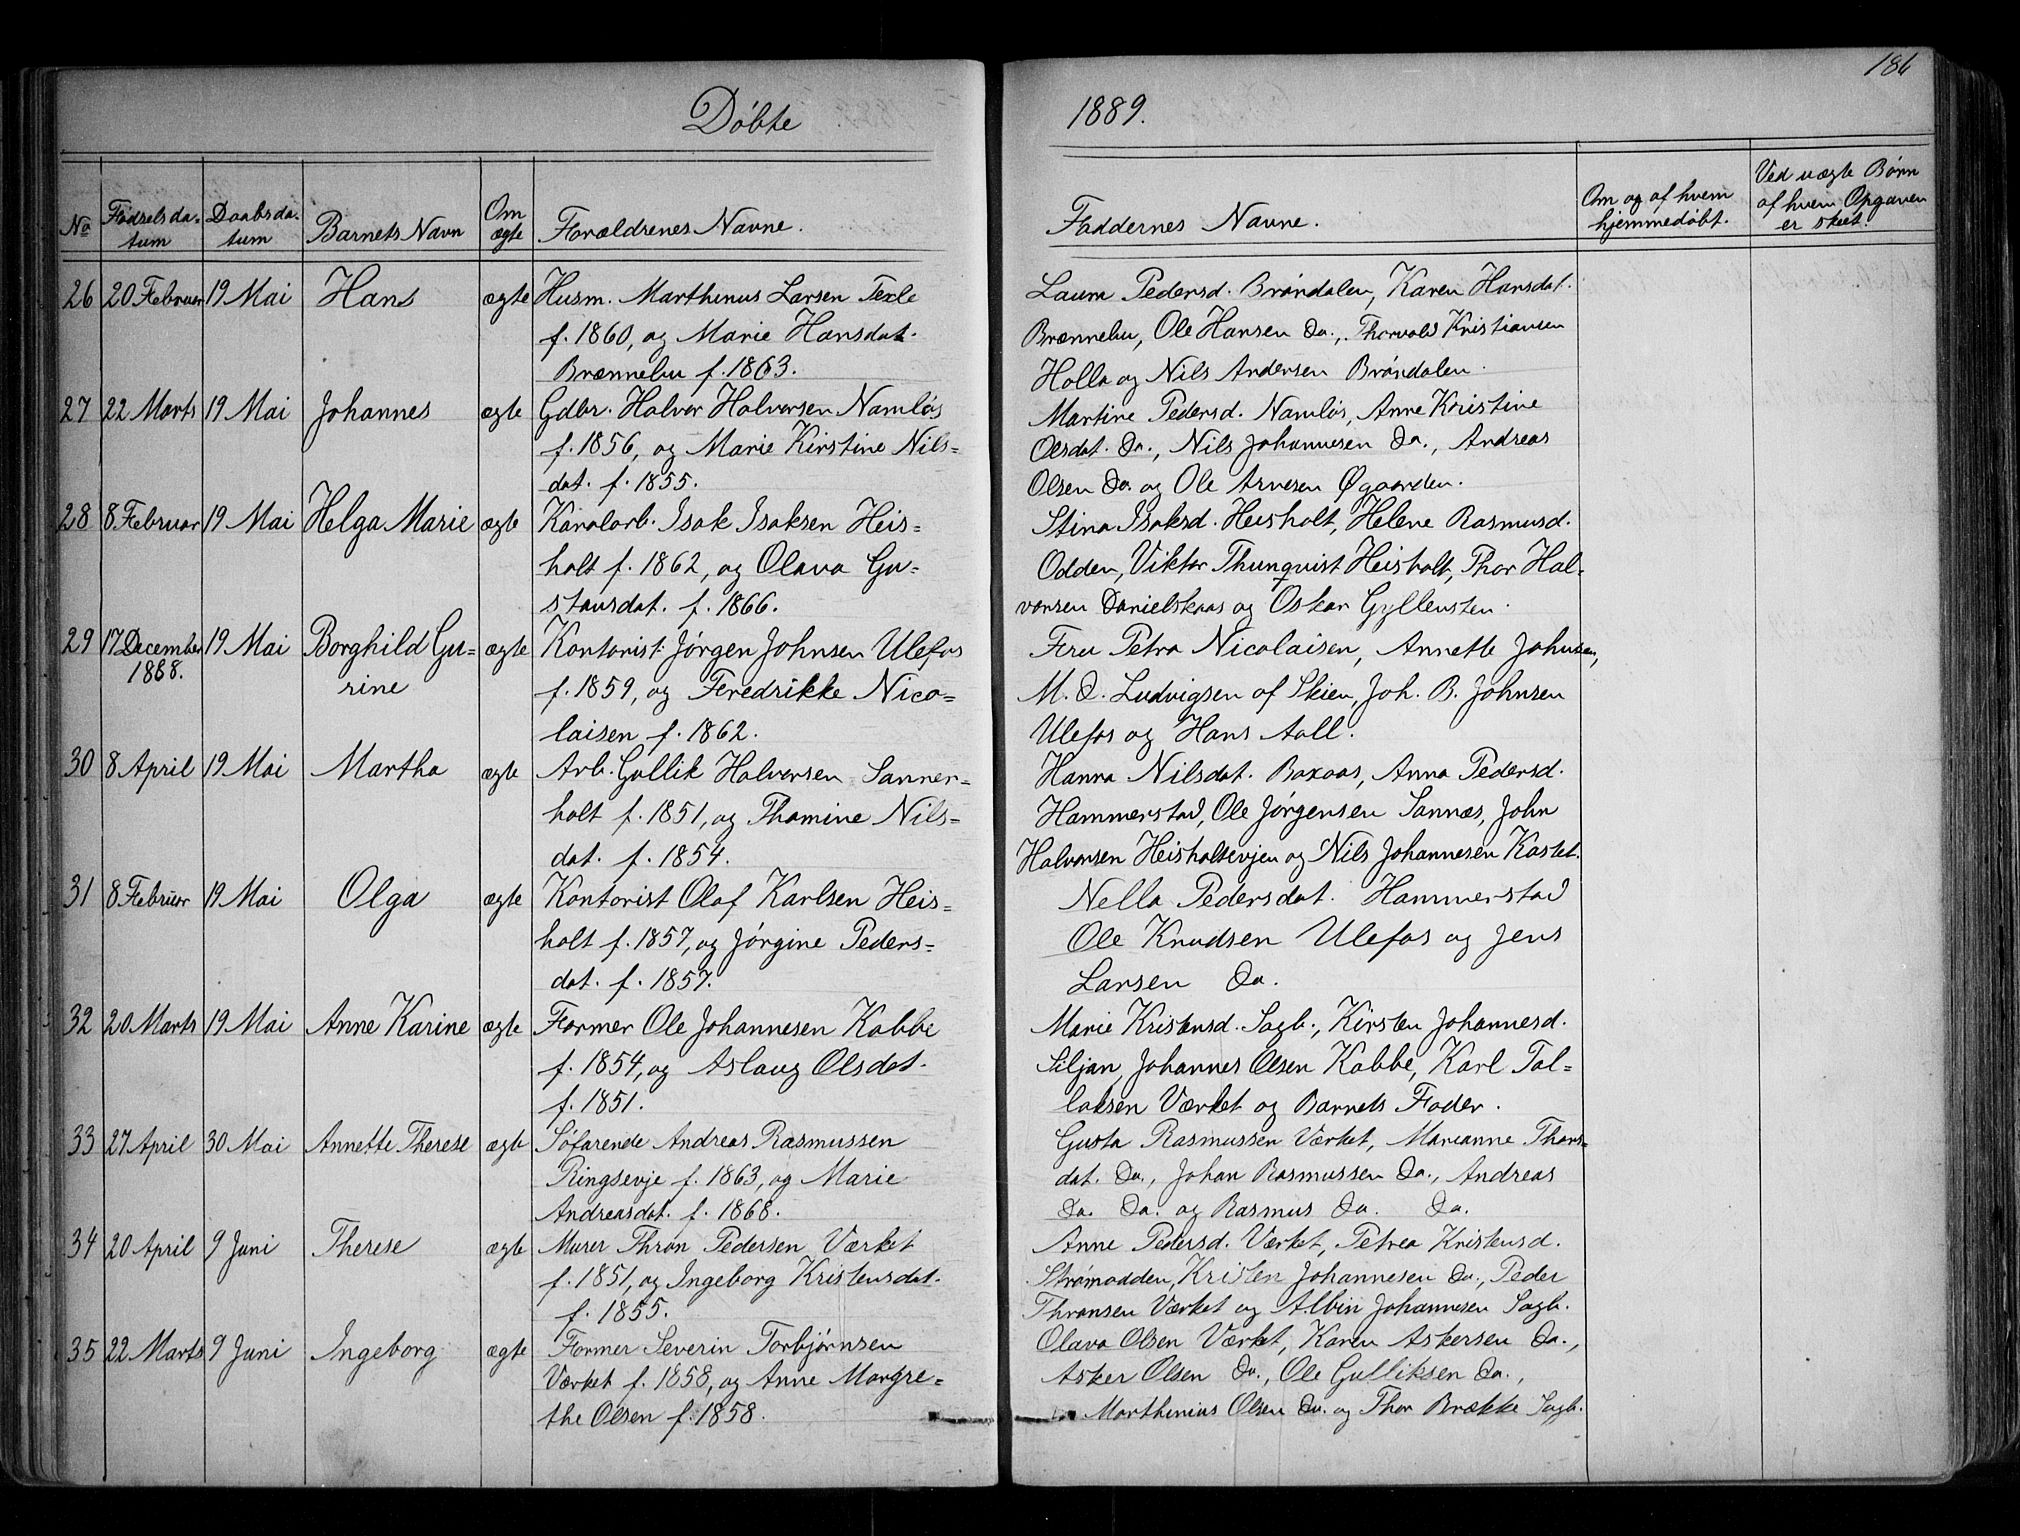 186
Døbte 1889.
No Fødselsda- Daabsda- Barnets Navn Om Forældrenes Navne. Faddernes Navne. Om og af hvem Ved uægte Børn
tum tum ægte hjemmedøbt. af hvem Opgaven
er skeet.
26 20 Februar 19 Mai Hans ægte Husm. Marthinus Larsen Texle Laura Pedersd. Brøndalen, Karen Hansdat.
f. 1860, og Marie Hansdat. Brønnebu, Ole Hansen Do., Thorvald Kristiansen
Brænnebu f. 1863. Holla og Nils Andersen Brøndalen.
27 22 Marts 19 Mai Johannes ægte Gdbr. Halvor Halvorsen Namløs Martine Pedersd. Namløs, Anne Kristine
f. 1856, og Marie Kirstine Nils- Olsdat. Do., Nils Johannesen Do., Andreas
dat. f. 1855. Olsen Do. og Ole Arnesen Øgaarden.
28 8. Februar 19 Mai Helga Marie ægte Kanalarb. Isak Isaksen Heis- Stina Isaksd. Heisholt, Helene Rasmusd.
holt f. 1862, og Olava Gu- Odden, Viktor Thunqvist Heisholt, Thor Hal-
stavsdat. f. 1866. vorsen Danielskaas og Oskar Gyllensten.
29 17 December 19 Mai Borghild Gu- ægte Kontorist Jørgen Johnsen Ulefos Fru Petra Nicolaisen, Annette Johnsen,
1888. rine f. 1859, og Feredrikke Nico- M. D. Ludvigsen af Skien, Joh. B. Johnsen
laisen f. 1862. Ulefos og Hans Aall.
30 8 April 19 Mai Martha ægte Arb. Gullik Halvorsen Sanner- Hanna Nilsdat. Baxaas, Anna Pedersd.
holt f. 1851, og Thomine Nils- Hammerstad, Ole Jørgensen Sannæs, John
dat. f. 1854. Halvorsen Heisholtevjen og Nils Johannesen Kastet.
31 8 Februar 19 Mai Olga ægte Kontorist Olaf Karlsen Heis- Nella Pedersdat. Hammerstad
holt f. 1857, og Jørgine Peders- Ole Knudsen Ulefos og Jens
dat. f. 1857. Larsen Do.
32 20 Marts 19 Mai Anne Karine ægte Former Ole Johannesen Kabbe Marie Kristensd. Sagb., Kirsten Johannesd.
f. 1854, og Aslaug Olsdat. Siljan, Johannes Olsen Kabbe, Karl Tol-
f. 1851. laksen Værket og Barnets Fader.
33 27 April 30 Mai Annette Therese ægte Søfarende Andreas Rasmussen Gusta Rasmussen Værket, Marianne Thors-
Ringsevje f. 1863, og Marie dat. Do., Johan Rasmussen Do., Andreas
Andreasdat. f. 1868. Do. Do. og Rasmus Do. Do.
34 20 April 9 Juni Therese ægte Murer Thron Pedersen Værket Anne Pedersd. Værket, Petrea Kristensd.
f. 1851, og Ingeborg Kristensdat. Strømodden, Kristen Johannesen Do., Peder
f. 1855. Thronsen Værket og Albin Johannesen Sagb.
35 22 Marts 9 Juni Ingeborg ægte Former Severin Torbjørnsen Olava Olsen Værket, Karen Askersen Do.,
Værket f. 1858, og Anne Margre- Asker Olsen Do., Ole Gulliksen Do.,
the Olsen f. 1858. Marthinius Olsen Do. og Thor Brække Sagb.